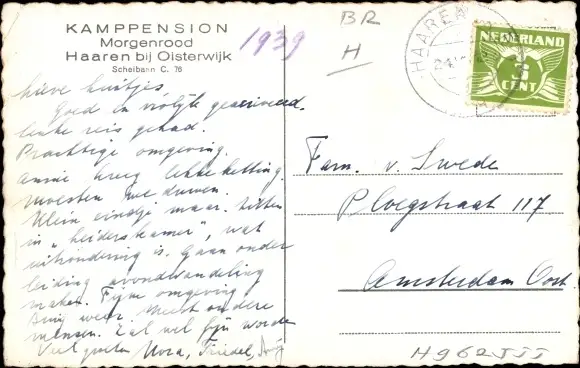 KAMPPENSION
Morgenrood
Haaren bij Oisterwijk
Scheibaan C. 76
1939
BR
H
HAAREN
NEDERLAND
3
CENT
Lieve luitjes
Goed en vrolijk gearriveerd.
leuke reis gehad.
Prachtige omgeving.
Annie kreeg lekke ketting.
Moesten we duwen.
Klein eindje maar. Zitten
in "heiderskamer", wat
uitzondering is. Gaan onder
leiding avondwandeling
maken. Fijne omgeving
weer. Meest oudere
mensen. Zal wel fijn worden
Veel groeten Nora, Friedel,
Fam. v. Swede
Ploegstraat 117
Amsterdam Oost.
H962JJJ